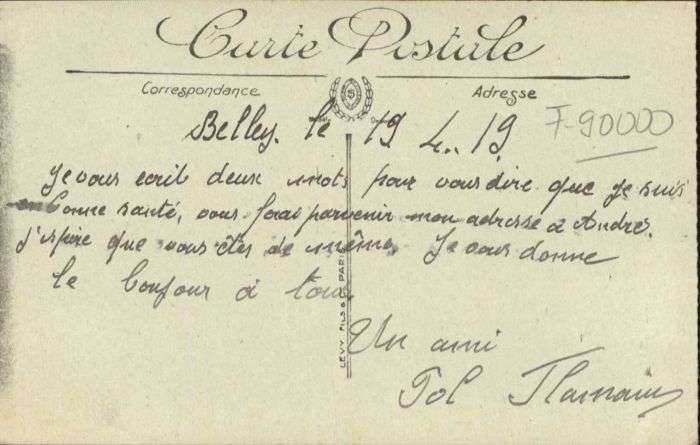 Carte Postale
Correspondance
Adresse
Belley. le 19 4. 19.
F-90000
Je vous ecrit deux mots pour vous dire que je suis
en bonne santé, vous ferai parvenir mon adresse à André.
j'espire que vous êtes de même, Je vous donne
le bonjour à tous.
Un ami
Pol
LÉVY FILS & PARIS